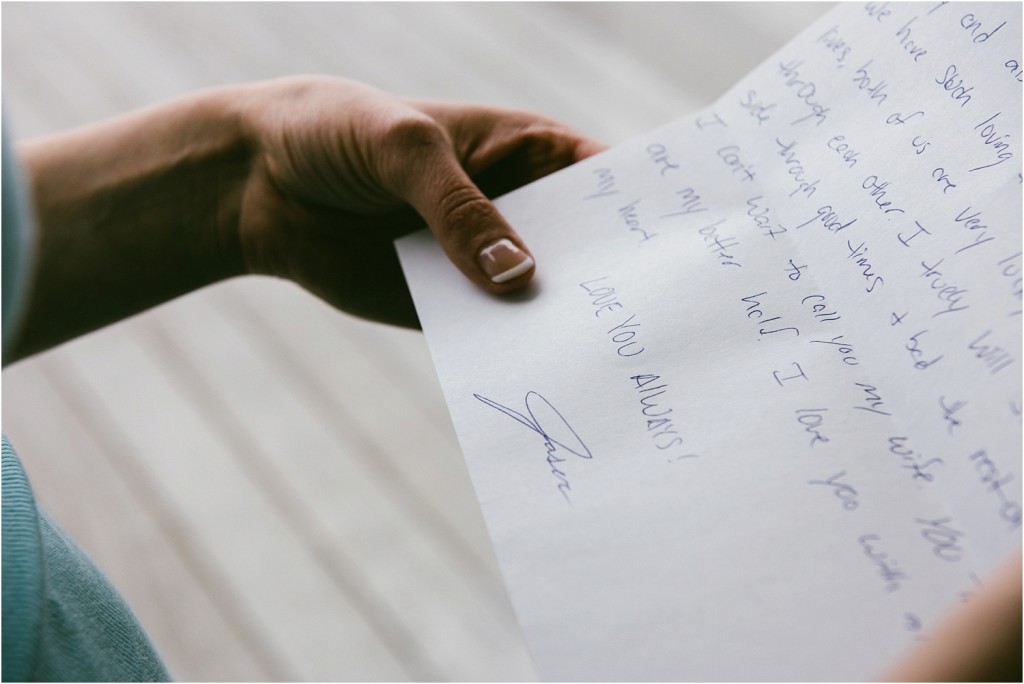 and
we have such loving
lives, both of us are very lucky
through each other. I trudy will
side through good times + bad the rest of
I can't wait to call you my wife. You
are my better half. I love you with
my heart
LOVE YOU ALWAYS!
Jason